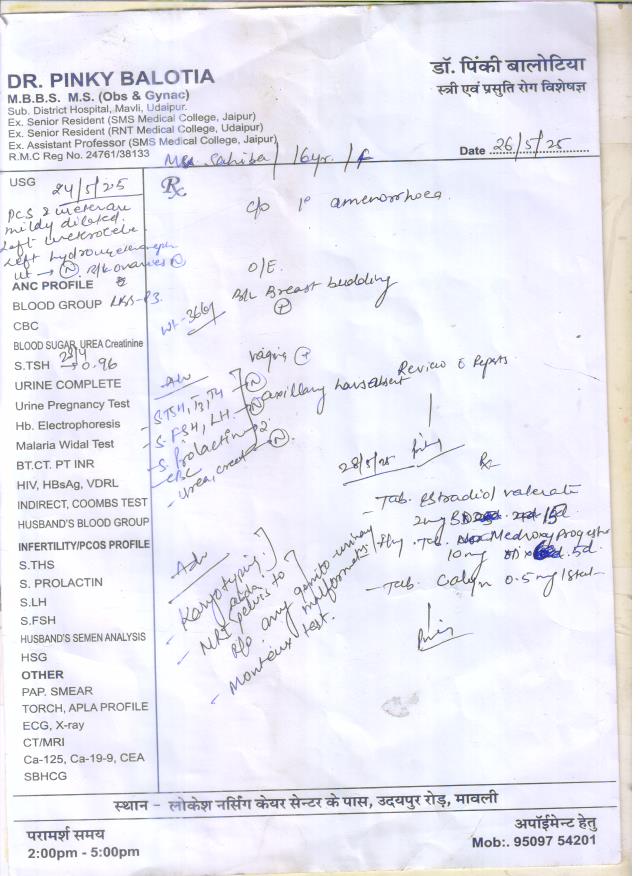 DR. PINKY BALOTIA
M.B.B.S. M.S. (Obs & Gynac)
Sub. District Hospital, Mavli, Udaipur.
Ex. Senior Resident (SMS Medical College, Jaipur)
Ex. Senior Resident (RNT Medical College, Udaipur)
Ex. Assistant Professor (SMS Medical College, Jaipur)
R.M.C Reg No. 24761/38133
डॉ. पिंकी बालोटिया
स्त्री एवं प्रसुति रोग विशेषज्ञ
Date 26/5/25
Sahiba / 16yr. / F
USG 24/5/25
PCS & ureter are
mildly dilated.
Left ureterocele.
Left
ut → N. ovaries N
Rx
c/o 1° amenorrhoea.
O/E.
B/L Breast budding
+
Wt - 36kg
vagina +
axillary hairs absent
ANC PROFILE
BLOOD GROUP
CBC
BLOOD SUGAR, UREA Creatinine
S.TSH → 0.96
URINE COMPLETE
Urine Pregnancy Test
Hb. Electrophoresis
Malaria Widal Test
BT.CT. PT INR
HIV, HBsAg, VDRL
INDIRECT, COOMBS TEST
HUSBAND'S BLOOD GROUP
INFERTILITY/PCOS PROFILE
S.THS
S. PROLACTIN
S.LH
S.FSH
HUSBAND'S SEMEN ANALYSIS
HSG
OTHER
PAP. SMEAR
TORCH, APLA PROFILE
ECG, X-ray
CT/MRI
Ca-125, Ca-19-9, CEA
SBHCG
Adv
- S.TSH, T3, T4 N
- S. FSH, LH - N
- S. Prolactin
- CBC
- Urea, creat N.
Review c Reports
Adv
- Karyotyping.
- MRI pelvis to
R/o any genito urinary
malformation
- Monteux test.
28/5/25
Rx
- Tab. Estradiol valerate
2mg 15d
Tab. Medroxyprogesterone
10mg 5d.
- Tab. 0.5mg 1 stat
स्थान - लोकेश नर्सिंग केयर सेन्टर के पास, उदयपुर रोड़, मावली
परामर्श समय
2:00pm - 5:00pm
अपॉईमेन्ट हेतु
Mob:. 95097 54201